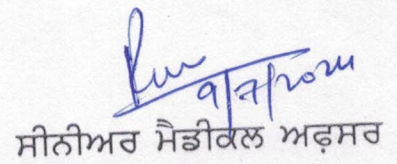 9/7/2024
ਸੀਨੀਅਰ ਮੈਡੀਕਲ ਅਫ਼ਸਰ